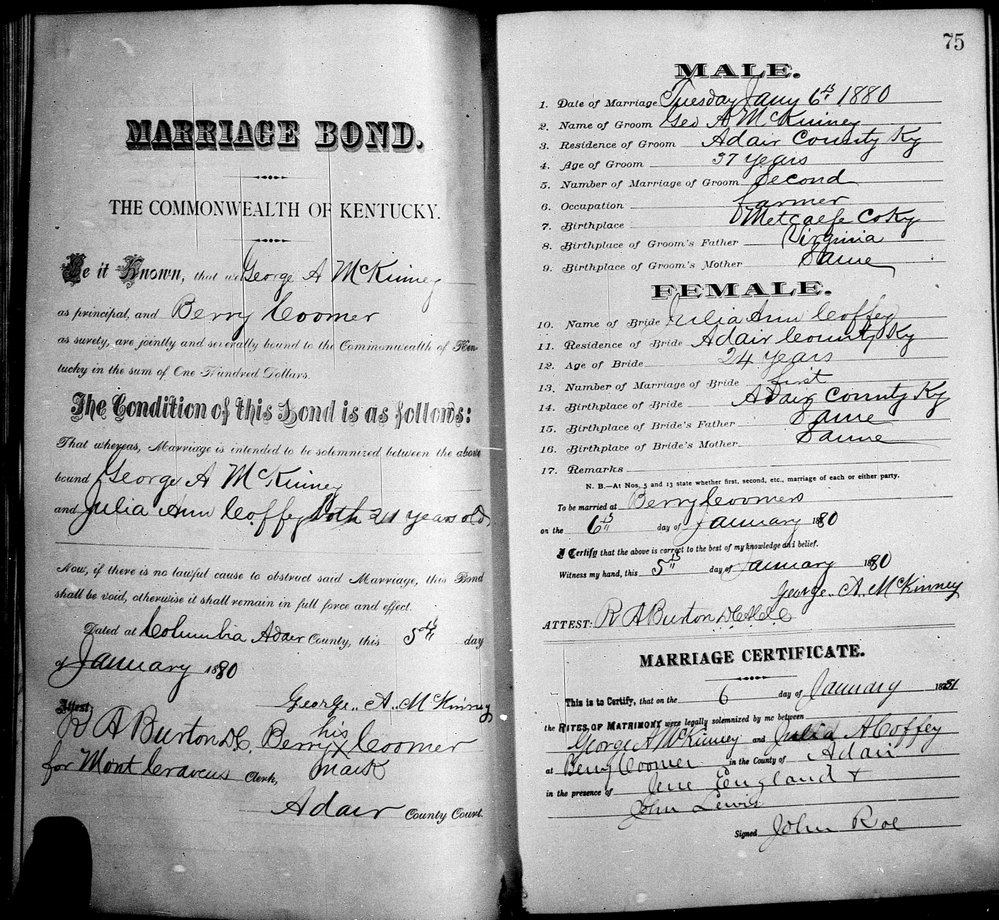 MARRIAGE BOND.
THE COMMONWEALTH OF KENTUCKY.
Be it Known, that we George A McKinney
as principal, and Berry Coomer
as surety, are jointly and severally bound to the Commonwealth of Ken-
tucky in the sum of One Hundred Dollars.
The Condition of this Bond is as follows:
That whereas, Marriage is intended to be solemnized between the above
bound George A McKinney
and Julia Ann Coffey both 21 years old
Now, if there is no lawful cause to obstruct said Marriage, this Bond
shall be void, otherwise it shall remain in full force and effect.
Dated at Columbia Adair County, this 5th day
of January 1880
George A. McKinney
Attest:
his
R A Burton DC, Berry X Coomer
mark
for Mont Cravens Clerk,
Adair County Court.
75
MALE.
1. Date of Marriage Tuesday Jany 6th 1880
2. Name of Groom Geo A McKinney
3. Residence of Groom Adair County Ky
4. Age of Groom 37 years
5. Number of Marriage of Groom Second
6. Occupation Farmer
7. Birthplace Metcalfe Co Ky
8. Birthplace of Groom's Father Virginia
9. Birthplace of Groom's Mother Same
FEMALE.
10. Name of Bride Julia Ann Coffey
11. Residence of Bride Adair County Ky
12. Age of Bride 24 years
13. Number of Marriage of Bride first
14. Birthplace of Bride Adair County Ky
15. Birthplace of Bride's Father Same
16. Birthplace of Bride's Mother Same
17. Remarks
N. B.—At Nos. 5 and 13 state whether first, second, etc., marriage of each or either party.
To be married at Berry Coomers
on the 6th day of January 1880
I Certify that the above is correct to the best of my knowledge and belief.
Witness my hand, this 5th day of January 1880
George A. McKinney
ATTEST: R A Burton
MARRIAGE CERTIFICATE.
This is to Certify, that on the 6 day of January
the RITES OF MATRIMONY were legally solemnized by me between
George A McKinney and Julia A Coffey
at Berry Coomer in the County of Adair
in the presence of England &
John Lewis
Signed John Roe